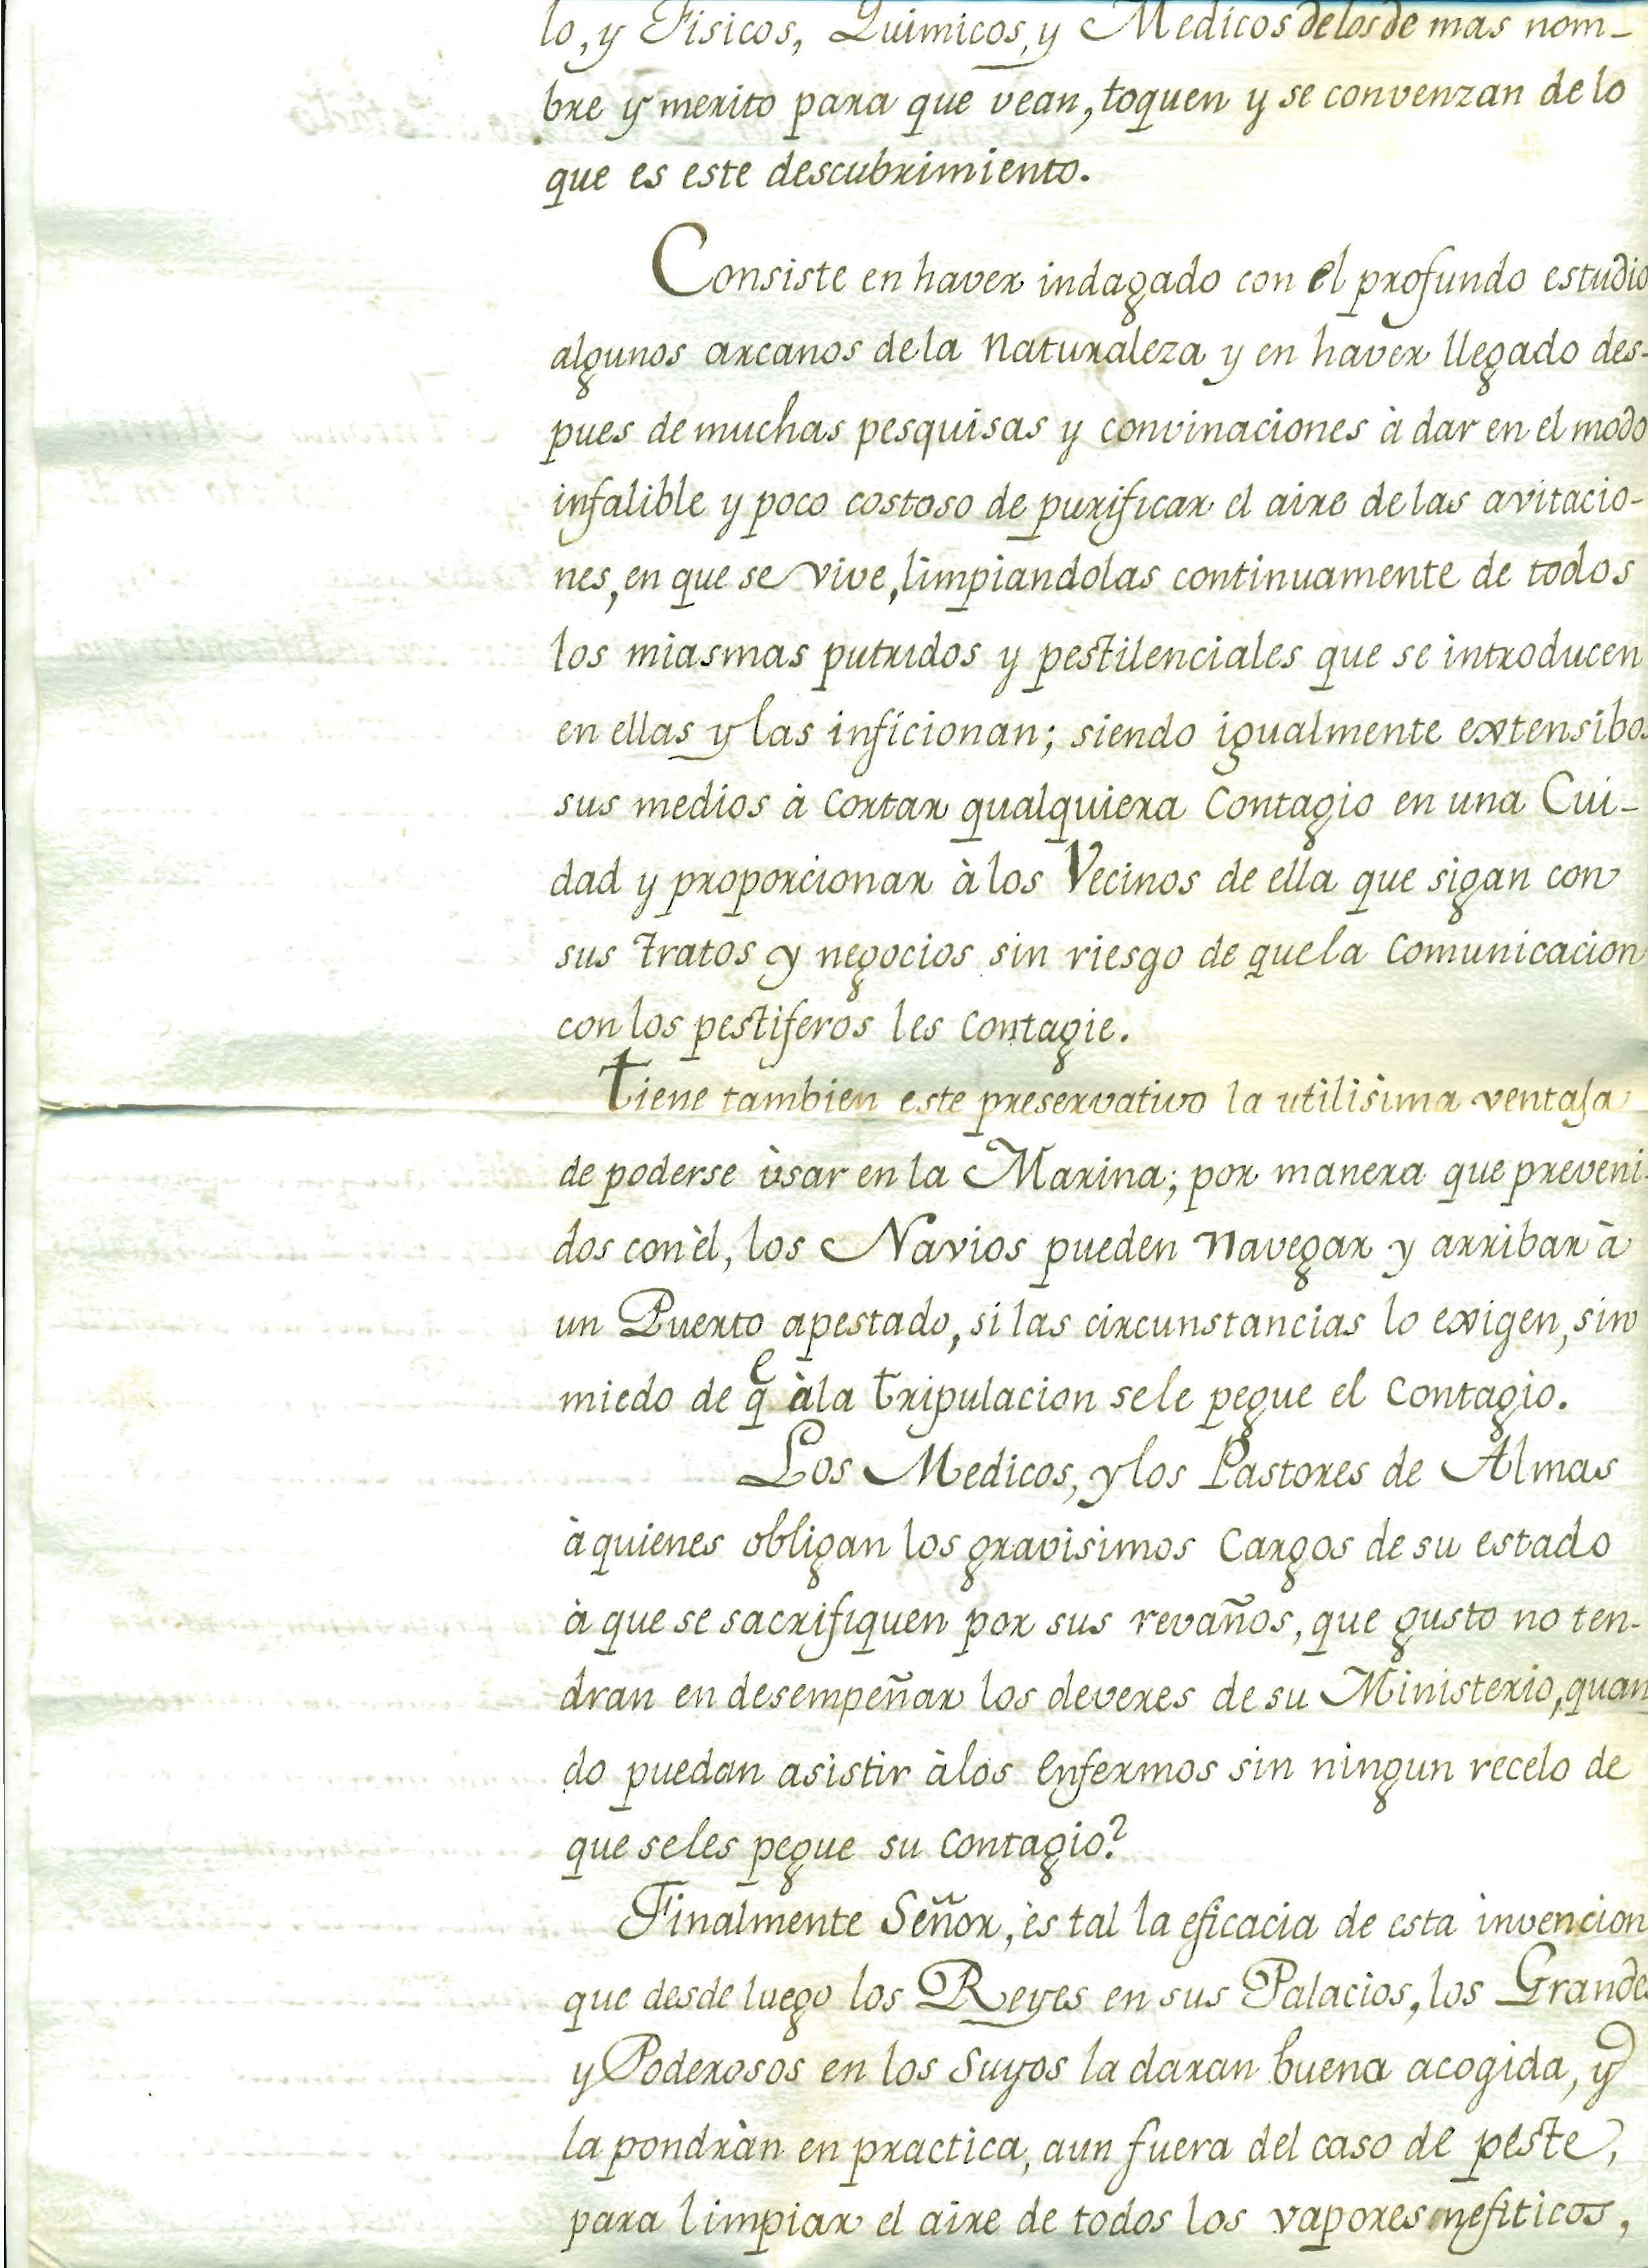 lo, y Fisicos, Quimicos, y Medicos delosde mas nom-
bre y merito para que vean, toquen y se convenzan de lo
que es este descubrimiento.
Consiste en haver indagado con el profundo estudio
algunos arcanos dela Naturaleza y en haver llegado des-
pues de muchas pesquisas y convinaciones à dar en el modo
infalible y poco costoso de purificar el aire de las avitacio-
nes, en que se vive, limpiandolas continuamente de todos
los miasmas putridos y pestilenciales que se introducen
en ellas y las inficionan; siendo igualmente extensibos
sus medios à cortar qualquiera Contagio en una Cui-
dad y proporcionar à los Vecinos de ella que sigan con
sus tratos y negocios sin riesgo de quela Comunicacion
con los pestiferos les Contagie.
Tiene tambien este preservativo la utilisima ventaja
de poderse ùsar en la Marina; por manera que preveni-
dos con èl, los Navios pueden Navegar y arribar à
un Puerto apestado, si las circunstancias lo exigen, sin
miedo de qe àla tripulacion sele pegue el Contagio.
Los Medicos, y los Pastores de Almas
à quienes obligan los gravisimos Cargos de su estado
à que se sacrifiquen por sus revaños, que gusto no ten-
dran en desempeñar los deveres de su Ministerio, quan
do puedan asistir àlos Enfermos sin ningun recelo de
que seles pegue su Contagio?
Finalmente Señor, ès tal la eficacia de esta invencion
que desde luego los Reyes en sus Palacios, los Grandes
y Poderosos en los Suyos la daran buena acogida, y
la pondràn en practica, aun fuera del caso de peste,
para limpiar el aire de todos los vapores mefiticos,